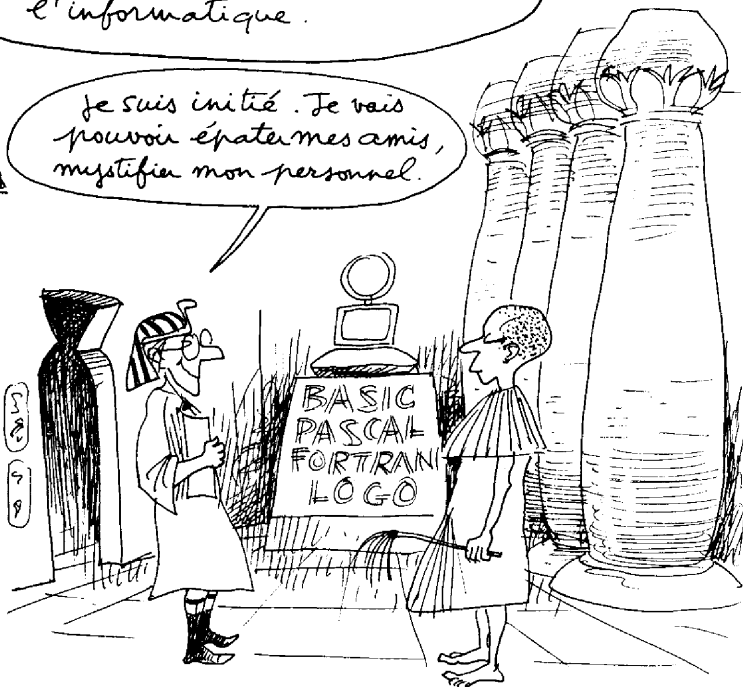 l'informatique.
Je suis initié. Je vais
pouvoir épater mes amis,
mystifier mon personnel.
BASIC
PASCAL
FORTRAN
LOGO